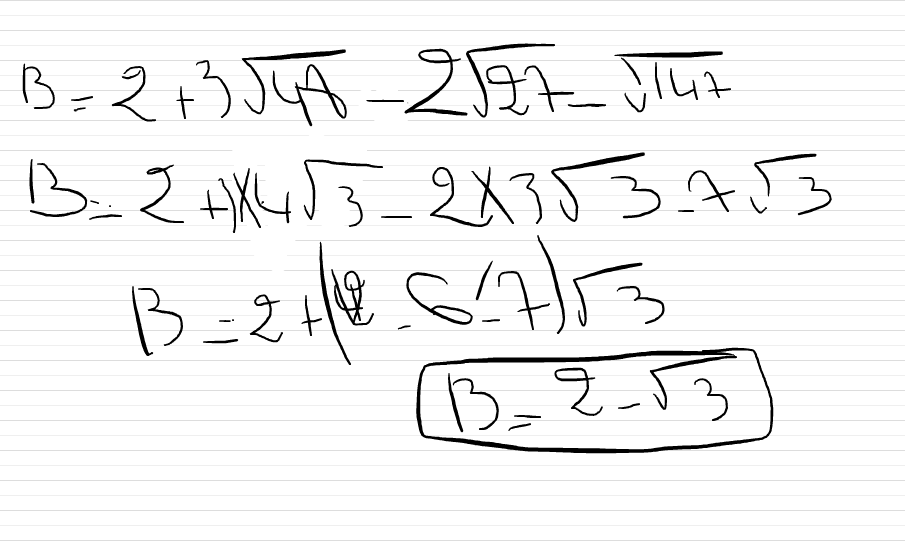 B = 2 + 3√48 - 2√27 - √147
B = 2 + 3×4√3 - 2×3√3 - 7√3
B = 2 + (12 - 6 - 7)√3
B = 2 - √3